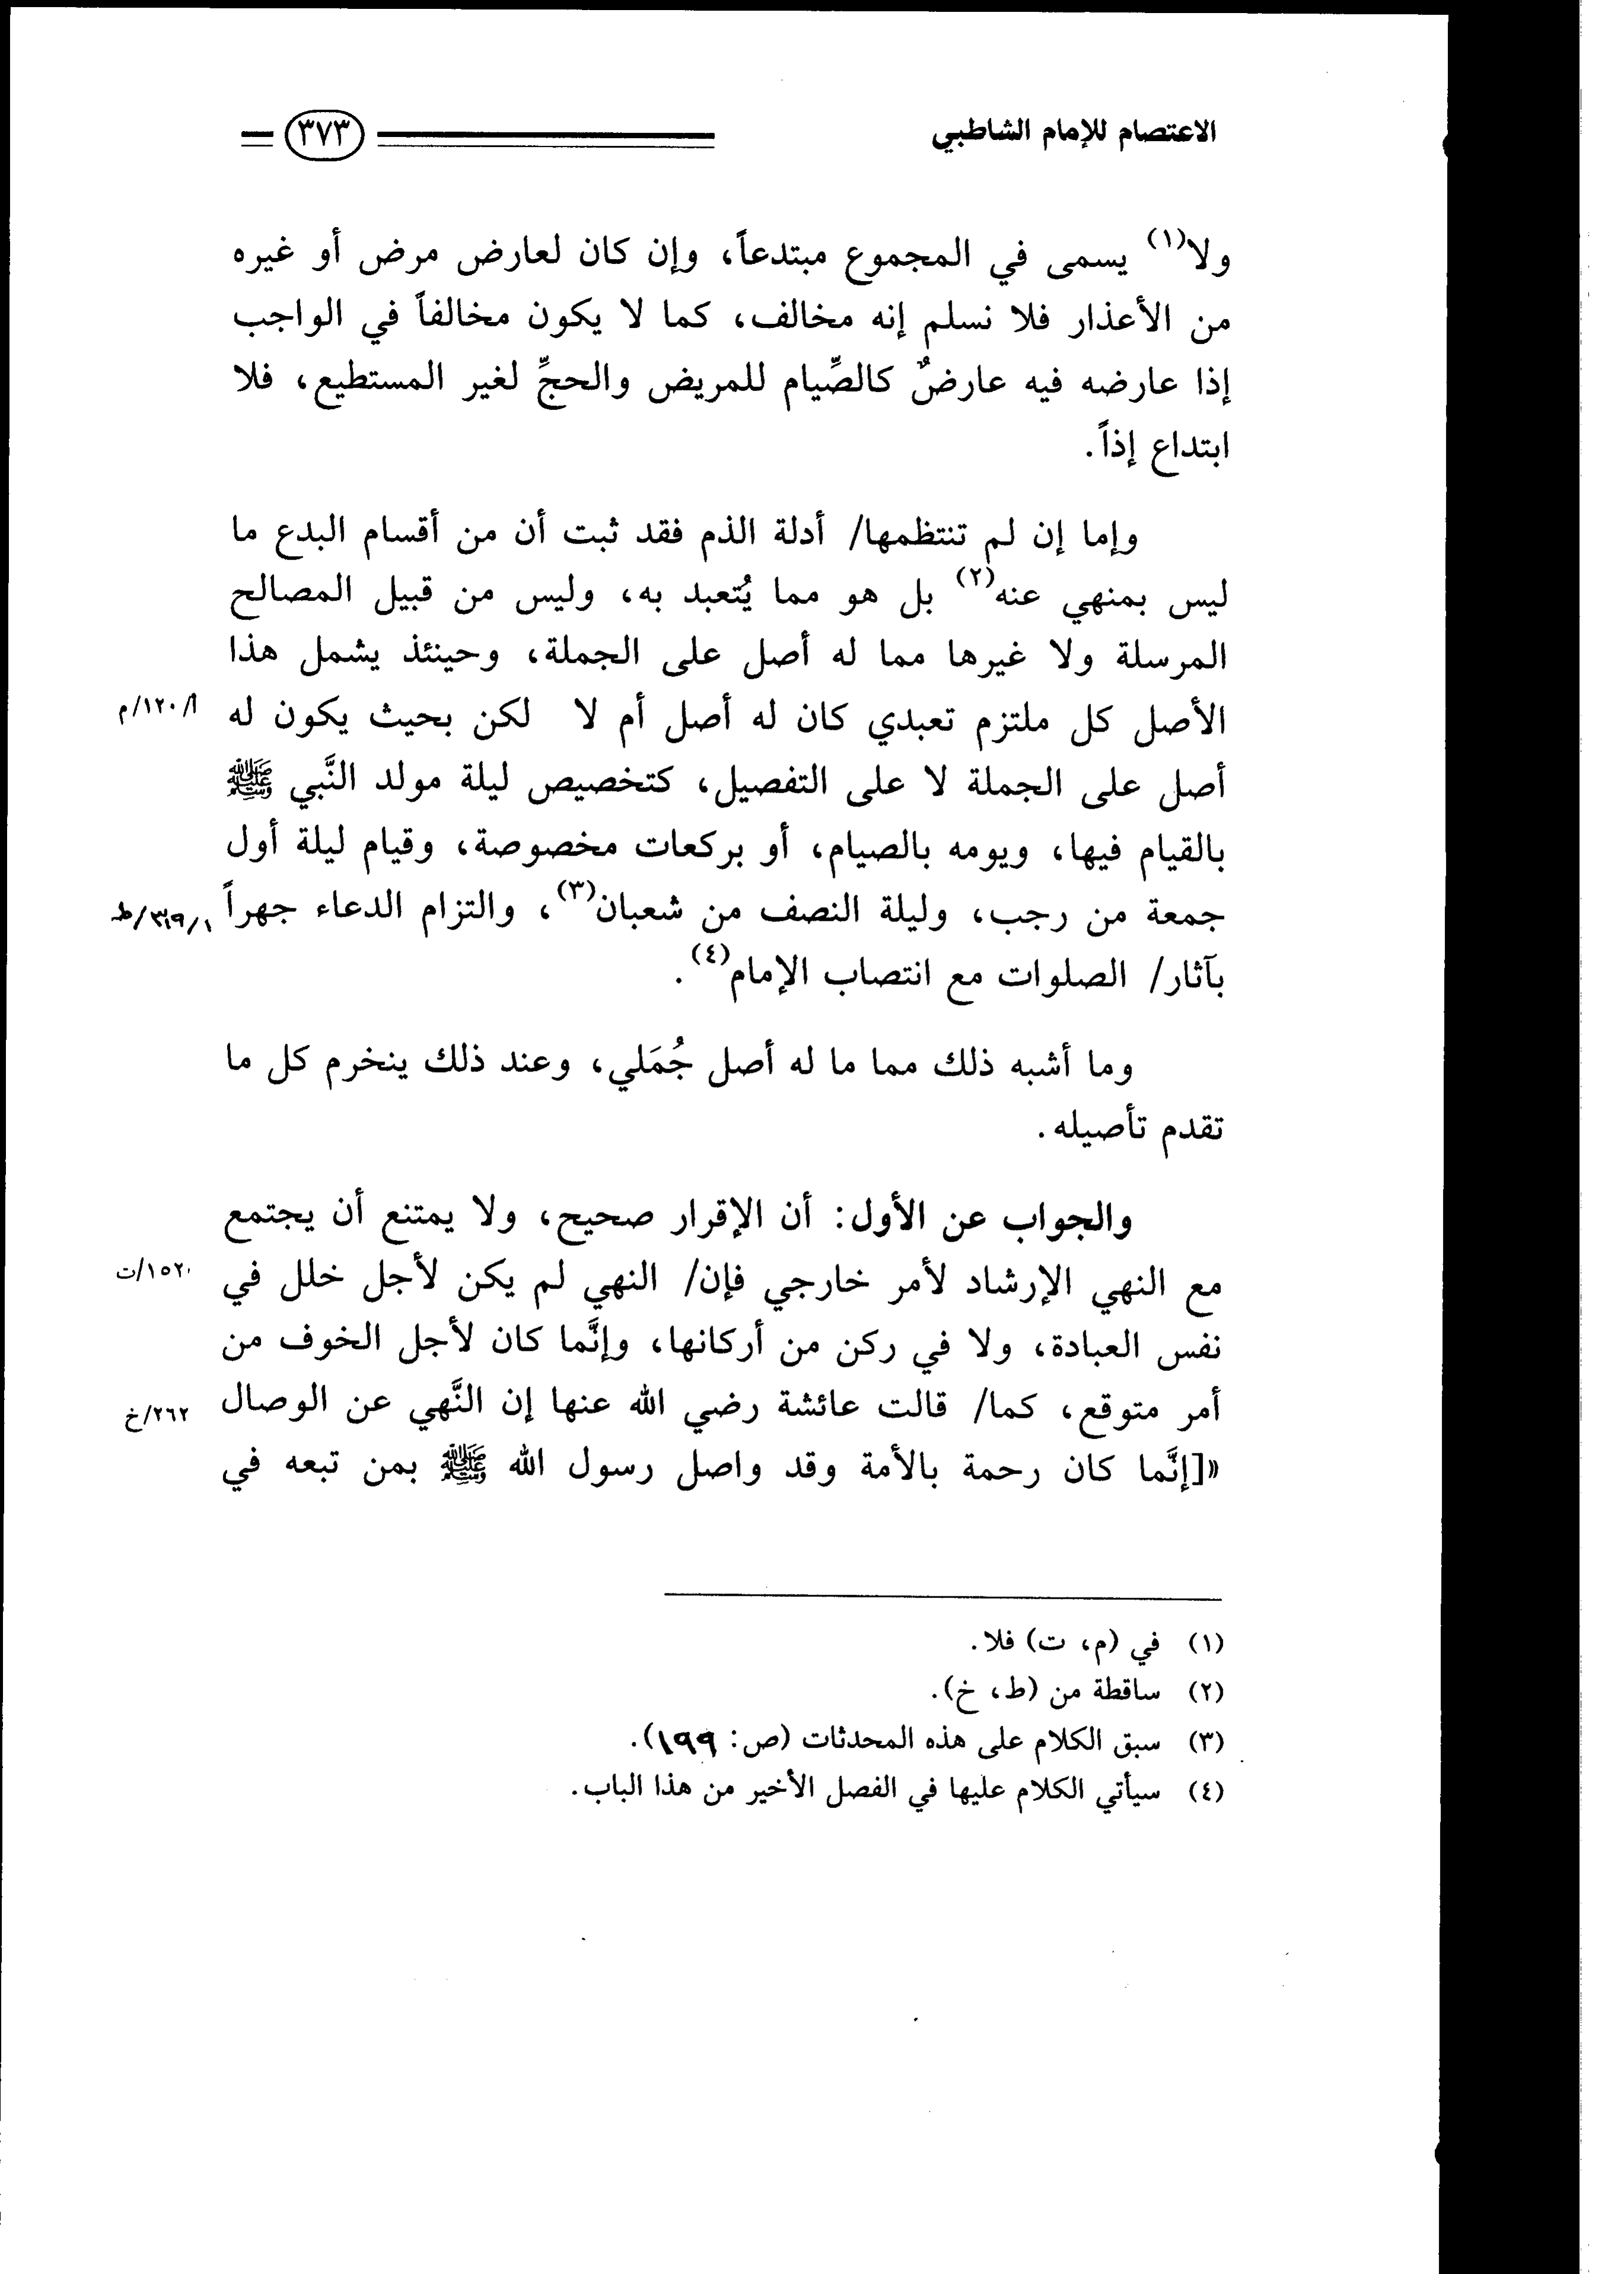 الاعتصام للإمام الشاطبي
٣٧٣
ولا(١) يسمى في المجموع مبتدعاً، وإن كان لعارض مرض أو غيره
من الأعذار فلا نسلم إنه مخالف، كما لا يكون مخالفاً في الواجب
إذا عارضه فيه عارضٌ كالصِّيام للمريض والحجِّ لغير المستطيع، فلا
ابتداع إذاً.
وإما إن لم تنتظمها/ أدلة الذم فقد ثبت أن من أقسام البدع ما
ليس بمنهي عنه(٢) بل هو مما يُتعبد به، وليس من قبيل المصالح
المرسلة ولا غيرها مما له أصل على الجملة، وحينئذ يشمل هذا
الأصل كل ملتزم تعبدي كان له أصل أم لا لكن بحيث يكون له
أ/١٢٠/م
أصل على الجملة لا على التفصيل، كتخصيص ليلة مولد النَّبي ﷺ
بالقيام فيها، ويومه بالصيام، أو بركعات مخصوصة، وقيام ليلة أول
جمعة من رجب، وليلة النصف من شعبان(٣)، والتزام الدعاء جهراً
بآثار/ الصلوات مع انتصاب الإمام(٤).
وما أشبه ذلك مما ما له أصل جُمَلي، وعند ذلك ينخرم كل ما
تقدم تأصيله.
والجواب عن الأول: أن الإقرار صحيح، ولا يمتنع أن يجتمع
مع النهي الإرشاد لأمر خارجي فإن/ النهي لم يكن لأجل خلل في
نفس العبادة، ولا في ركن من أركانها، وإنَّما كان لأجل الخوف من
أمر متوقع، كما/ قالت عائشة رضي الله عنها إن النَّهي عن الوصال
٢٦٢/خ
«[إنَّما كان رحمة بالأمة وقد واصل رسول الله ﷺ بمن تبعه في
(١) في (م، ت) فلا.
(٢) ساقطة من (ط، خ).
(٣) سبق الكلام على هذه المحدثات (ص: ١٩٩).
(٤) سيأتي الكلام عليها في الفصل الأخير من هذا الباب.